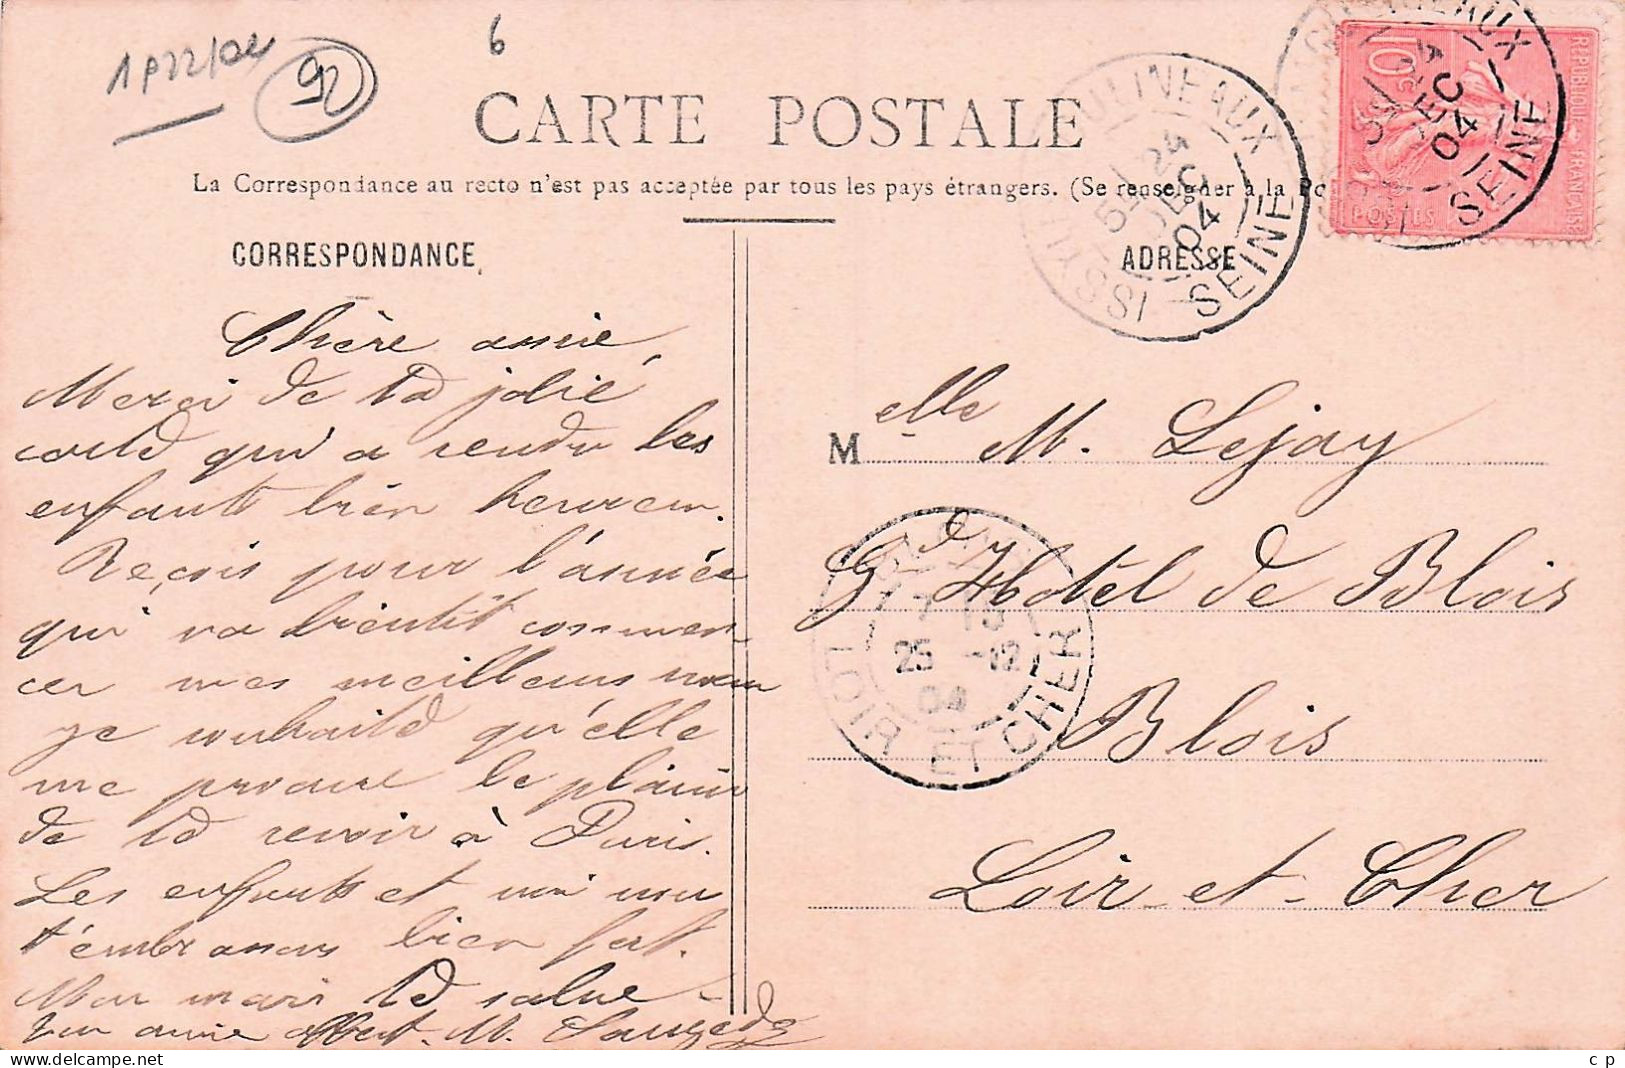 1p22/04
95
6
CARTE POSTALE
La Correspondance au recto n'est pas acceptée par tous les pays étrangers. (Se renseigner à la Po
CORRESPONDANCE
ADRESSE
10
REPUBLIQUE FRANÇAISE
POSTES
MOULINEAUX
24
DEC
04
ISSY-LES
SEINE
SEINE
Chère amie,
Merci de ta jolie
carte qui a rendu les
enfants bien heureux.
Reçois pour l'année
qui va bientôt commen
cer mes meilleurs vœux
je souhaite qu'elle
me procure le plaisir
de te revoir à Paris.
Les enfants et moi nous
t'embrassons bien fort.
Mon mari te salue
Ton amie M.
Melle M. Lejay
Gd Hôtel de Blois
Blois
Loir-et-Cher
BLOIS
7 15
25 -12
04
LOIR ET CHER
c p